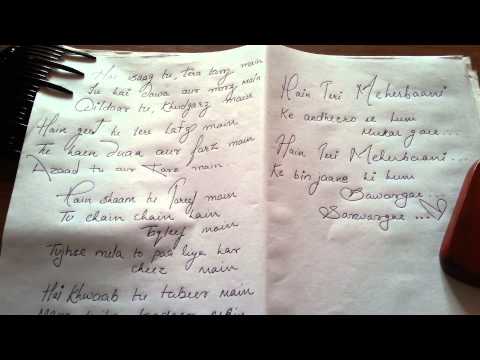 Hai saaz tu, tera tarz main
Tu hai dawa aur marz main
Dildaar tu, Khudgarz main
Hain geet tu tere lafz main
Tu hain duaa aur farz main
Azaad tu aur Karz main...
Hain shaam tu Tareef main
Tu chain chain hain
Taqleef main
Tujhse mila to paa liya har
cheez main
Hai Khwaab tu tabeer main
Hain Teri Meherbaani
Ke andhero se hum
Mukar gaye...
Hain Teri Meherbaani...
Ke bin jaane hi hum
Sawargae...
Sanwargae...